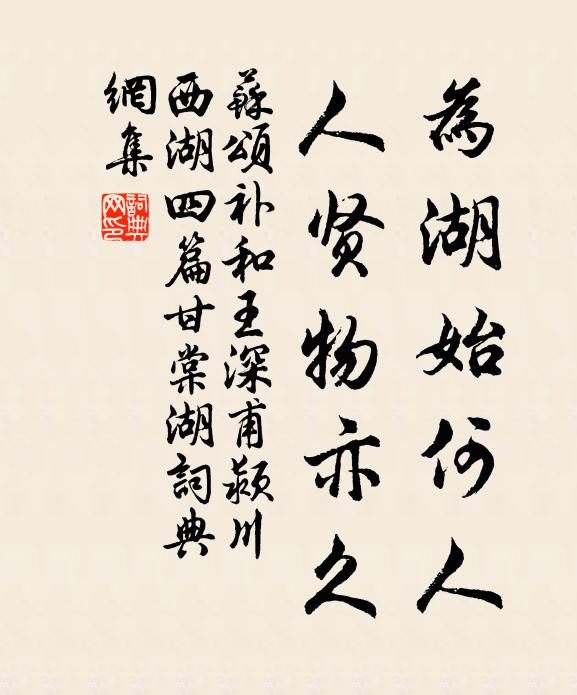 為湖始何人
人贤物亦久
蘇頌补和王深甫颍川
西湖四篇甘棠湖詞典
網集
詞典
网印